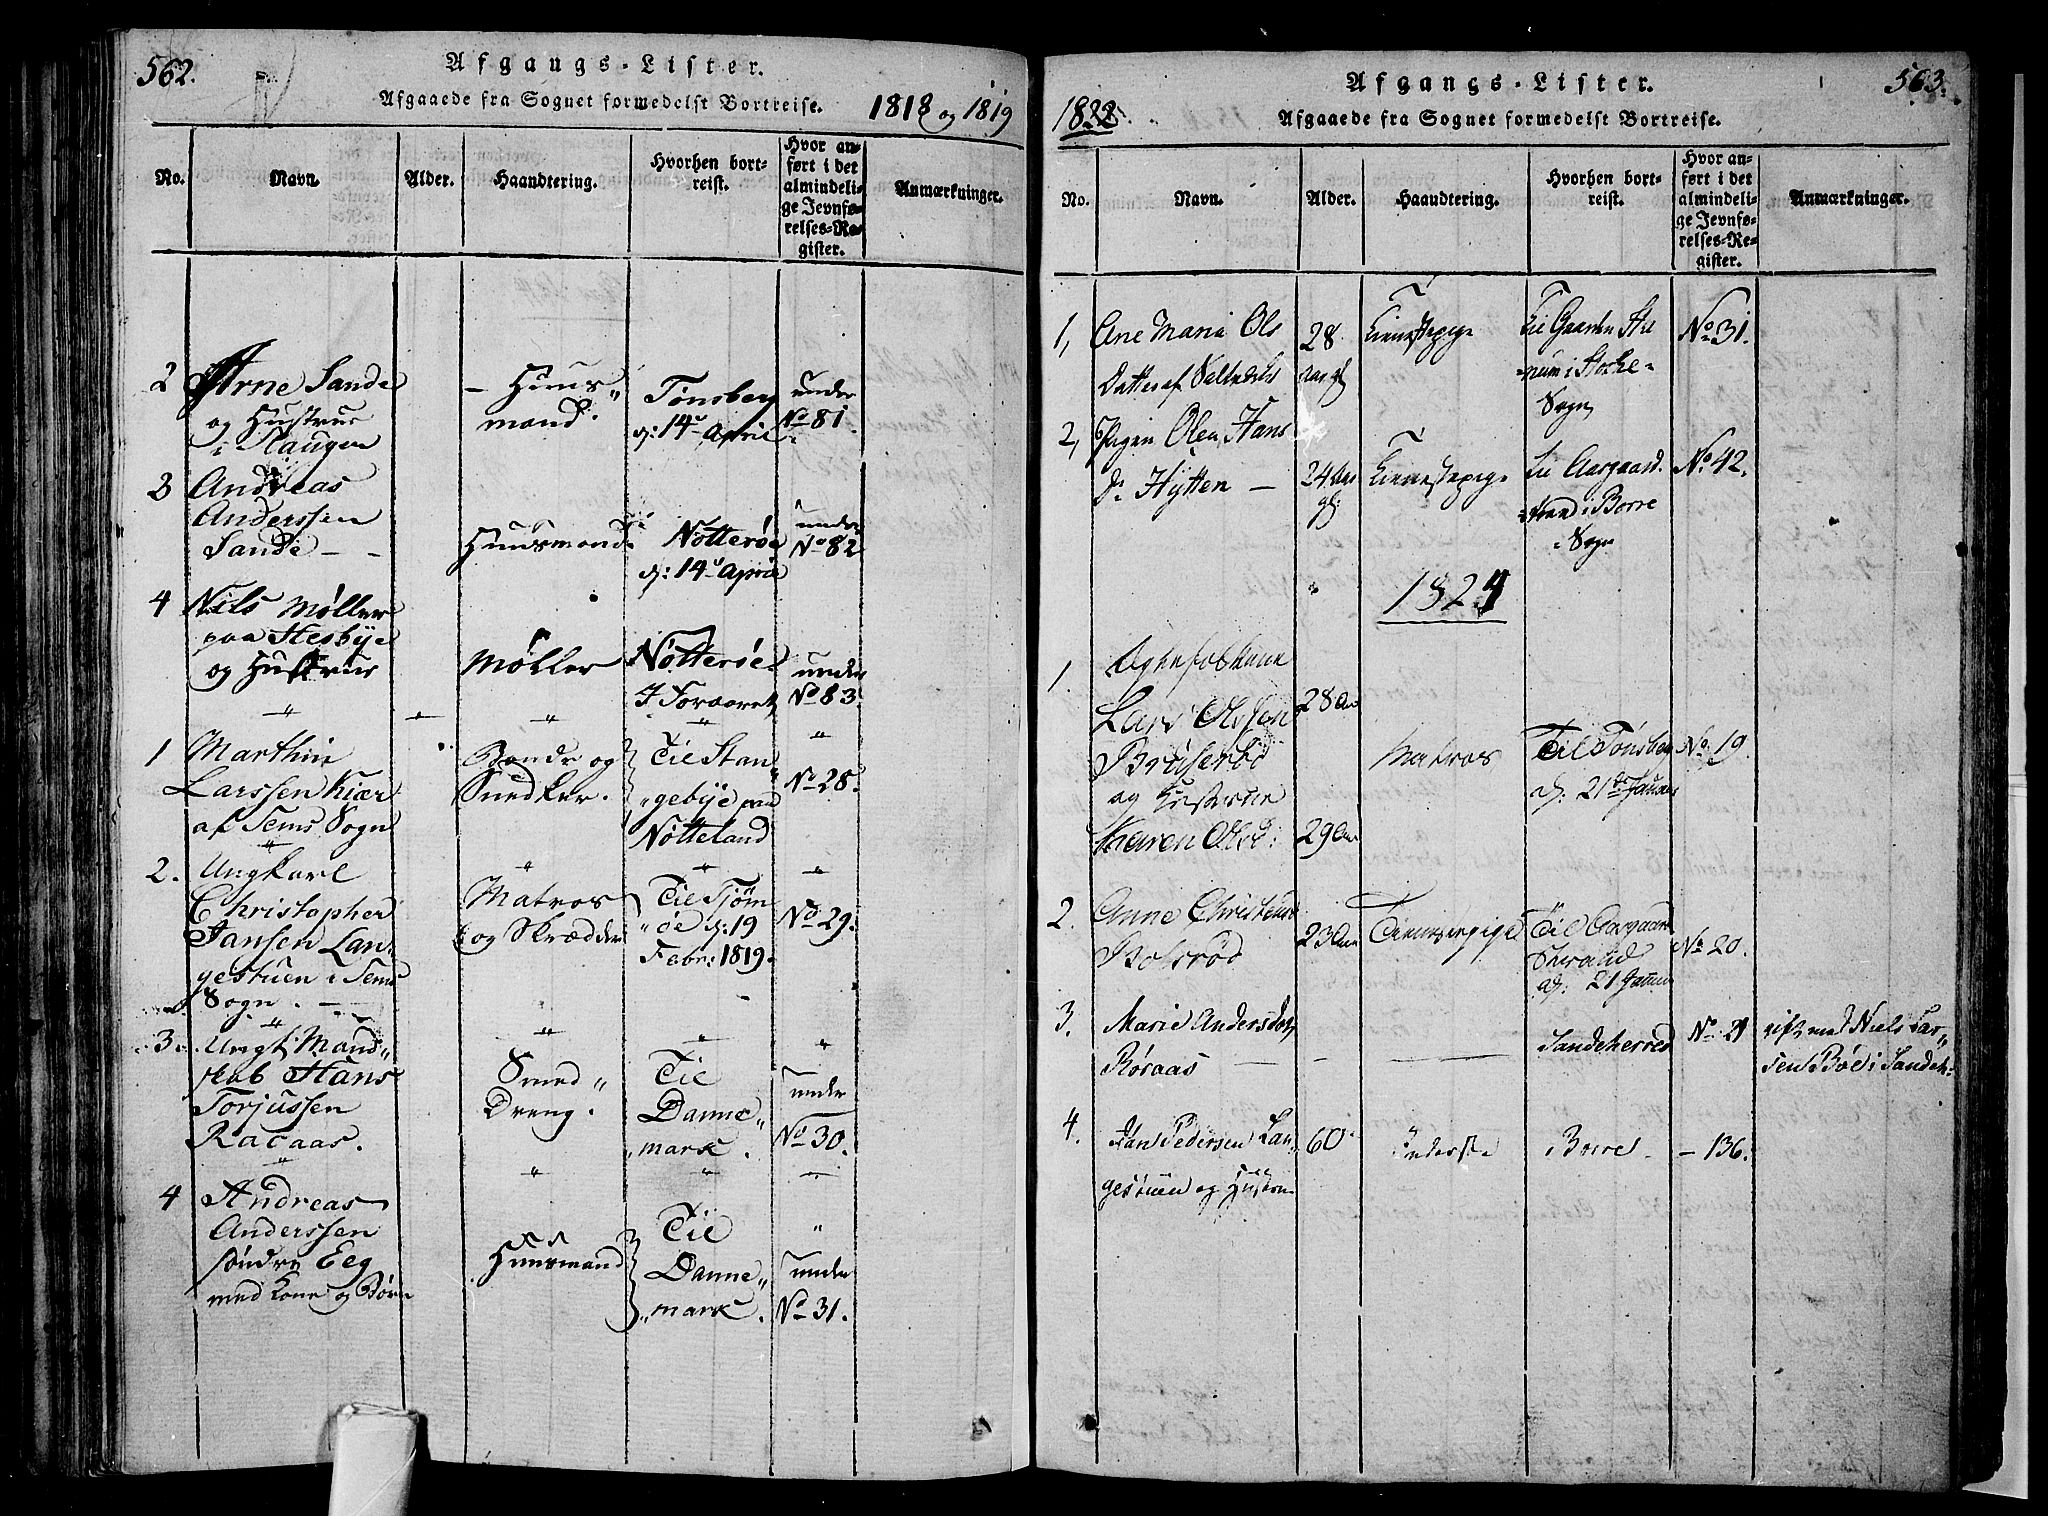 562.
Afgangs-Lister.
Afgaaede fra Sognet formedelst Bortreise.
1818 og 1819
No.
Navn.
Alder.
Haandtering.
Hvorhen bort-
reist.
Hvor an-
ført i det
almindeli-
ge Jevnfø-
relses-Re-
gister.
Anmærkninger.
2
Arne Sande
og Hustrue
i Haugen
Huus"
mand.
Tønsberg
d: 14de April
under
No 81.
3
Andreas
Anderssen
Sande
Huusmand
Nøtterøe
d: 14de April
under
No 82
4
Nils Møller
paa Hesbye
og Hustrue
Møller
Nøtterøe
I Foraaret
under
No 83.
1
Marthin
Larssen Kiær
af Sems Sogn
Bonde og
Snedker.
Til Stan"
"gebye paa
Nøtteland
No 28.
2.
Ungkarl
Christopher
Jansen Lan"
gestuen i Sems
Sogn.
Matros
og Skrædder
Til Tjøm
"øe d: 19
Febr: 1819.
No 29.
3.
Ungt Mand"
skab Hans
Torjussen
Racaas.
Smed"
Dreng.
Til
Danne"
"mark.
under
No 30.
4
Andreas
Anderssen
søndre Eeg
med Kone og Børn
Huusmand
Til
Danne"
"mark.
under
No 31.
563.
Afgangs-Lister.
1822.
Afgaaede fra Sognet formedelst Bortreise.
No.
Navn.
Alder.
Haandtering.
Hvorhen bort-
reist.
Hvor an-
ført i det
almindeli-
ge Jevnfø-
relses-Re-
gister.
Anmærkninger.
1,
Ane Maria Ols
Datter af
28
Aar gl
Tienestepige
til Gaarden
i Stocke-
Sogn
No 31.
2,
Pigen Olea Hans
Dr Hytten —
24 Aar
gl:
Tienestepige
til Aasgaard-
strand i Borre
Sogn
No 42.
1824
1.
Ægtefolkene
Lars Olssen
Bruserød
og Hustrue
Karen Olsd:
28 Aar
29 Aar
Matros
Til Tønsberg
d: 21de Januar
No 19.
2.
Anne Christens
23 Aar
Tienestepige
Til Aasgaard
Strand
d: 21 Januar
No 20.
3.
Marie Andersdat
Røraas
Sandeherred
No 21
gift med Niels Lar"
sen Bøe i Sandeh:
4.
Jan Pedersen Lan"
gestuen og Hustru
60
Borre
— 136.